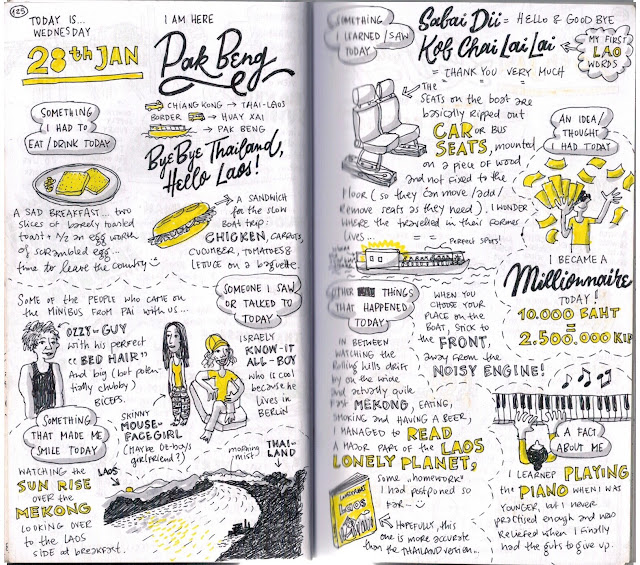 125
TODAY IS...
WEDNESDAY
28th JAN
I AM HERE
Pak Beng
CHIANG KONG → THAI-LAOS
BORDER → HUAY XAI
→ PAK BENG
Bye Bye Thailand,
Hello Laos!
SOMETHING
I HAD TO
EAT/DRINK TODAY
A SAD BREAKFAST... two
slices of barely toasted
toast + 1/2 an egg worth
of scrambled egg...
time to leave the country
A SANDWICH
for the slow
boat trip:
CHICKEN, CARROTS,
CUCUMBER, TOMATOES &
LETTUCE on a baguette.
SOMEONE I SAW
OR TALKED TO
TODAY
SOME OF THE PEOPLE WHO CAME ON
THE MINIBUS FROM PAI WITH US...
OZZY GUY
with his perfect
"BED HAIR"
AND big (but poten
tially chubby)
BICEPS.
SKINNY
MOUSE-
FACE GIRL
(MAYBE OZ-BOYS
girlfriend?)
ISRAELY
KNOW-IT
ALL-BOY
who is cool
because he
lives in
BERLIN
SOMETHING
THAT MADE ME
SMILE TODAY
WATCHING the
SUN RISE
OVER the
MEKONG
LOOKING OVER
to the LAOS
SIDE at breakfast..
LAOS
morning
mist
THAI-
LAND
SOMETHING
I LEARNED/SAW
TODAY
Sabai Dii = HELLO & GOOD BYE
Kob Chai Lai Lai
= THANK YOU VERY MUCH
MY FIRST
LAO
WORDS
THE
SEATS on the boat are
basically ripped out
CAR OR BUS
SEATS, mounted
on a piece of wood
and not fixed to the
floor (so they can move/add/
remove seats as they need). I WONDER
WHERE the travelled in their former
lives...
PERFECT SPOTS!
AN IDEA/
THOUGHT
I HAD TODAY
I BECAME A
Millionnaire
TODAY!
10.000 BAHT
=
2.500.000 KIP
OTHER THINGS
THAT HAPPENED
TODAY
WHEN YOU
CHOOSE YOUR
PLACE on the
BOAT, STICK to
the FRONT,
away from the
NOISY ENGINE!
IN BETWEEN
WATCHING the
Rolling hills drift
by on the wide
and actually quite
fast MEKONG, EATING,
SMOKING and HAVING A BEER,
I MANAGED to READ
A MAJOR PART of the LAOS
LONELY PLANET,
some "homework"
I had postponed so
far...
HOPEFULLY, this
one is more accurate
than the THAILAND version...
LAOS
A FACT
ABOUT ME
I LEARNED PLAYING
the PIANO WHEN I WAS
YOUNGER, but I never
practised enough and was
Relieved when I finally
had the guts to give up.